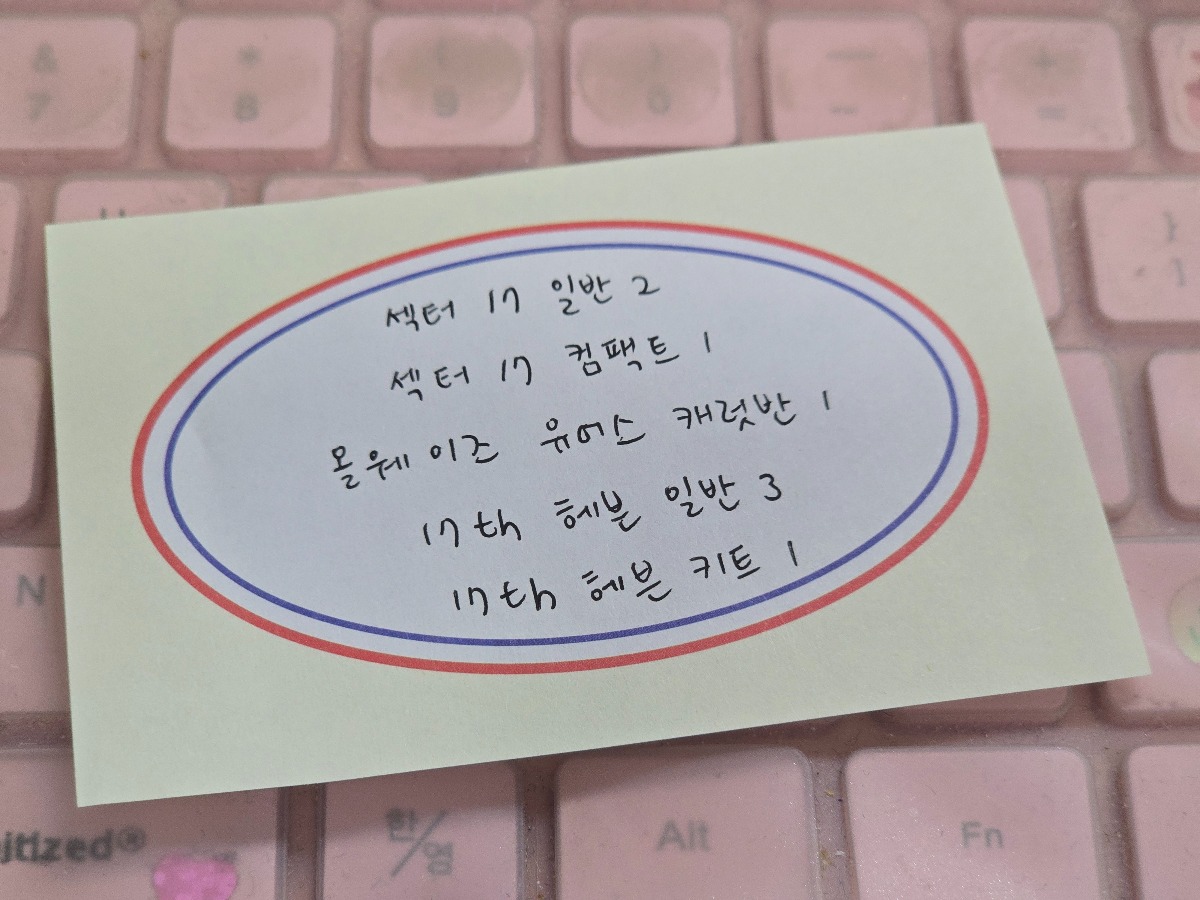 & * ( ) — +
7 8 9 0 - =
섹터 17 일반 2
섹터 17 컴팩트 1
올웨이즈 유어스 캐럿반 1
17th 헤븐 일반 3
17th 헤븐 키트 1
N
한/영 Alt Fn